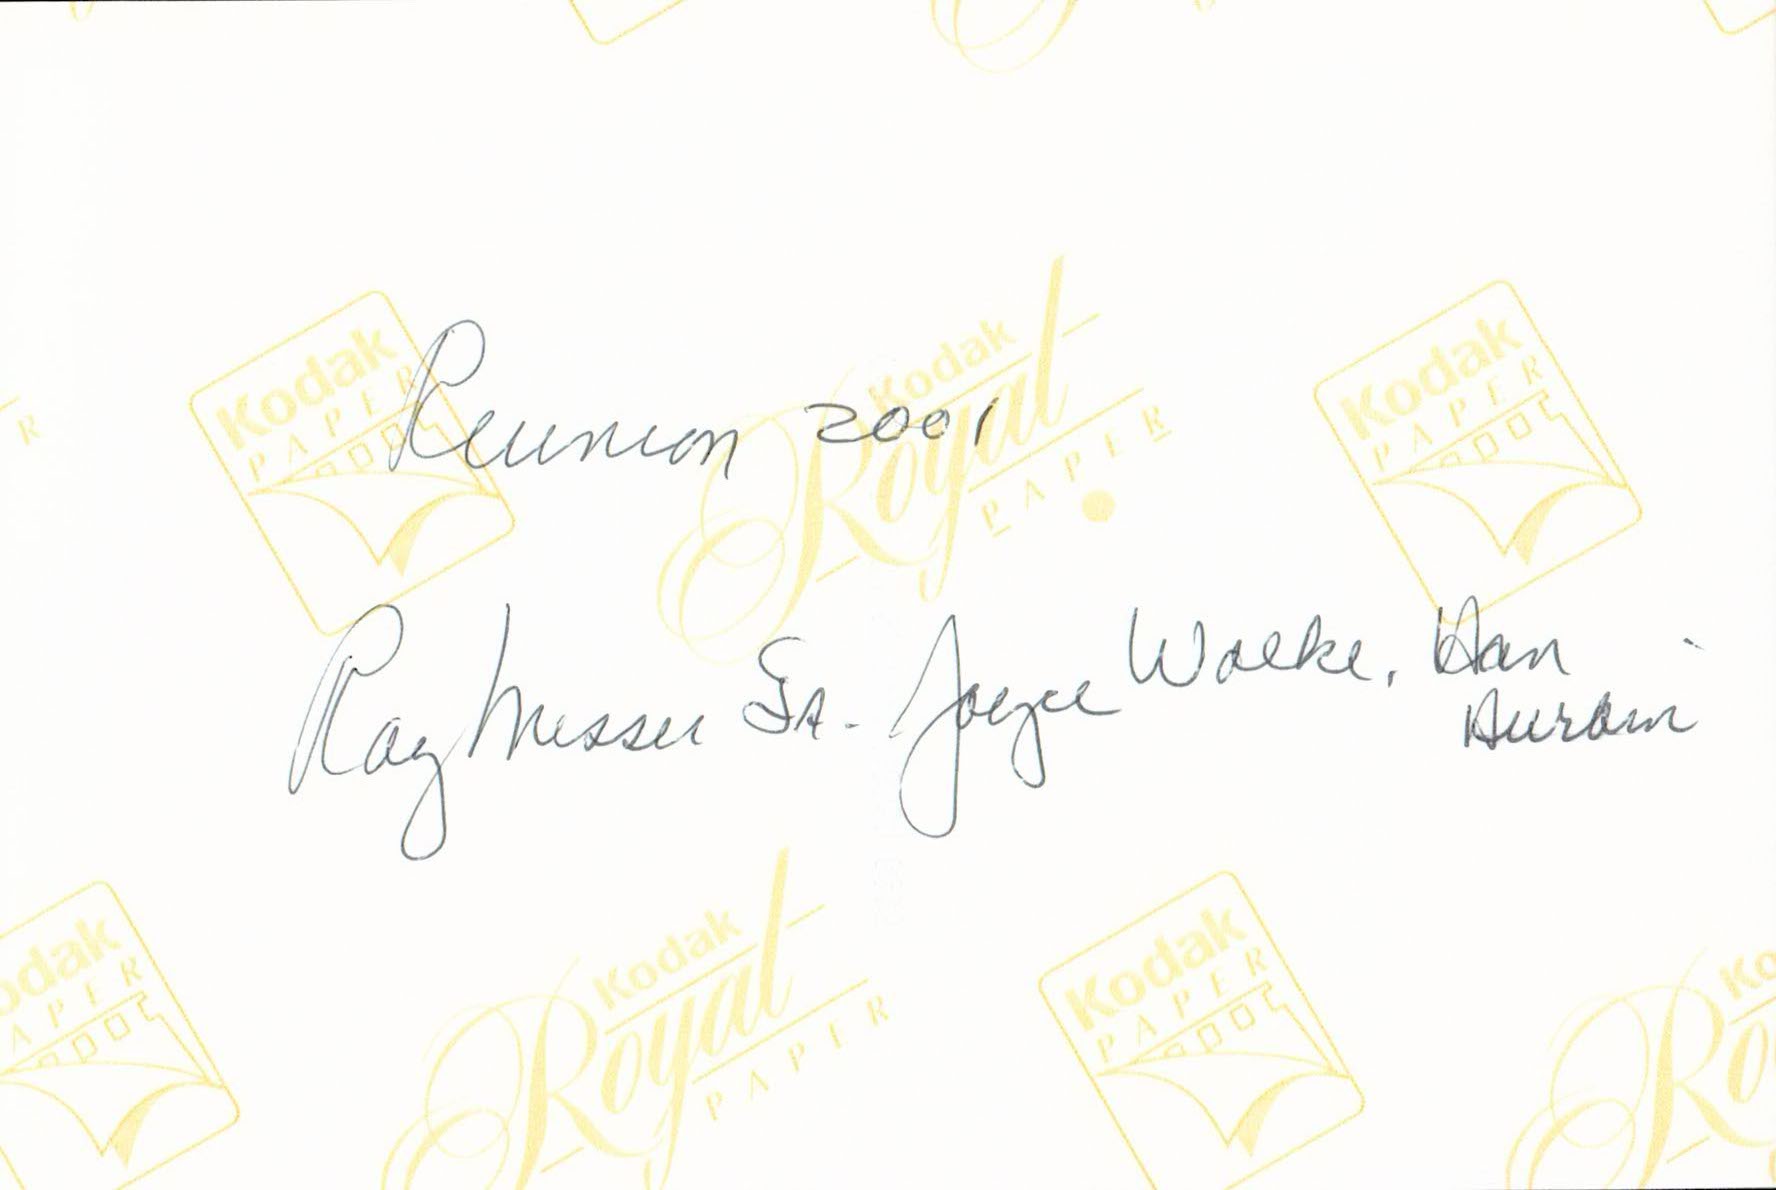 Reunion 2001
Ray Messer Sr. Joyce Woelke, Han
Kodak
PAPER
Kodak
Royal
PAPER
Kodak
PAPER
Kodak
PAPER
Kodak
Royal
PAPER
Kodak
PAPER